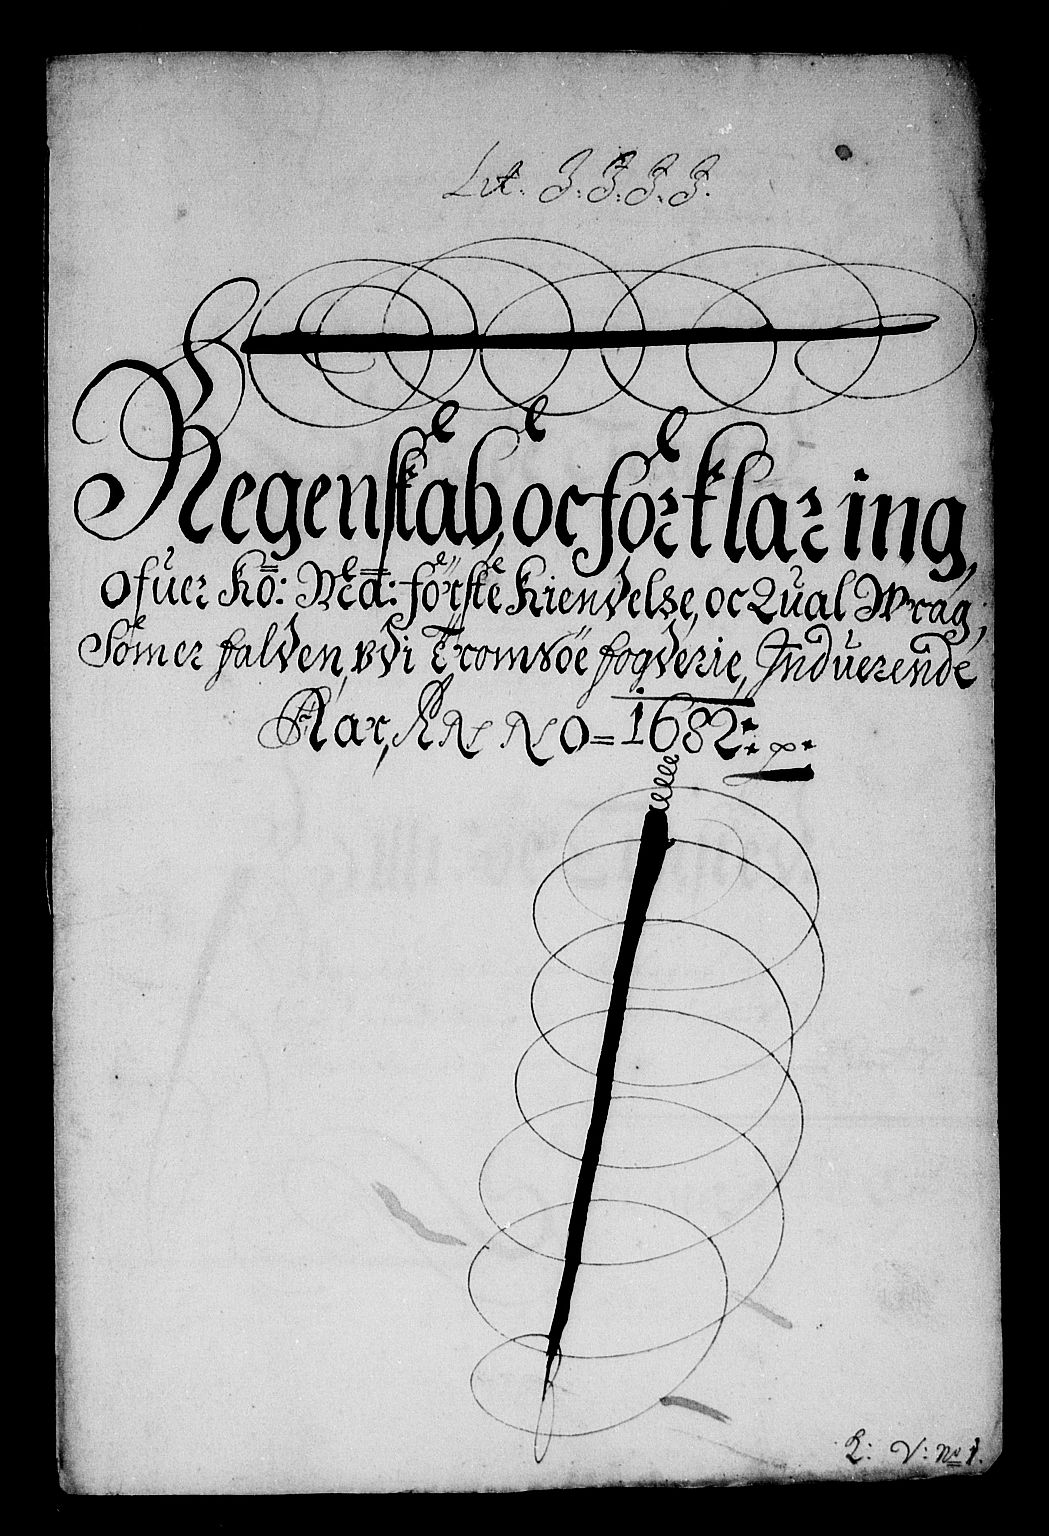 Lit. J. J. J. J.
Regenskab, oc forklaring,
Ofuer Kö: Maÿ: förste Kiendelse, oc Qual Wrag,
Somer falden, vdi Tromsöe fogderie, Induerende
Aar, ANNO = 1682:
L: V: No 1.